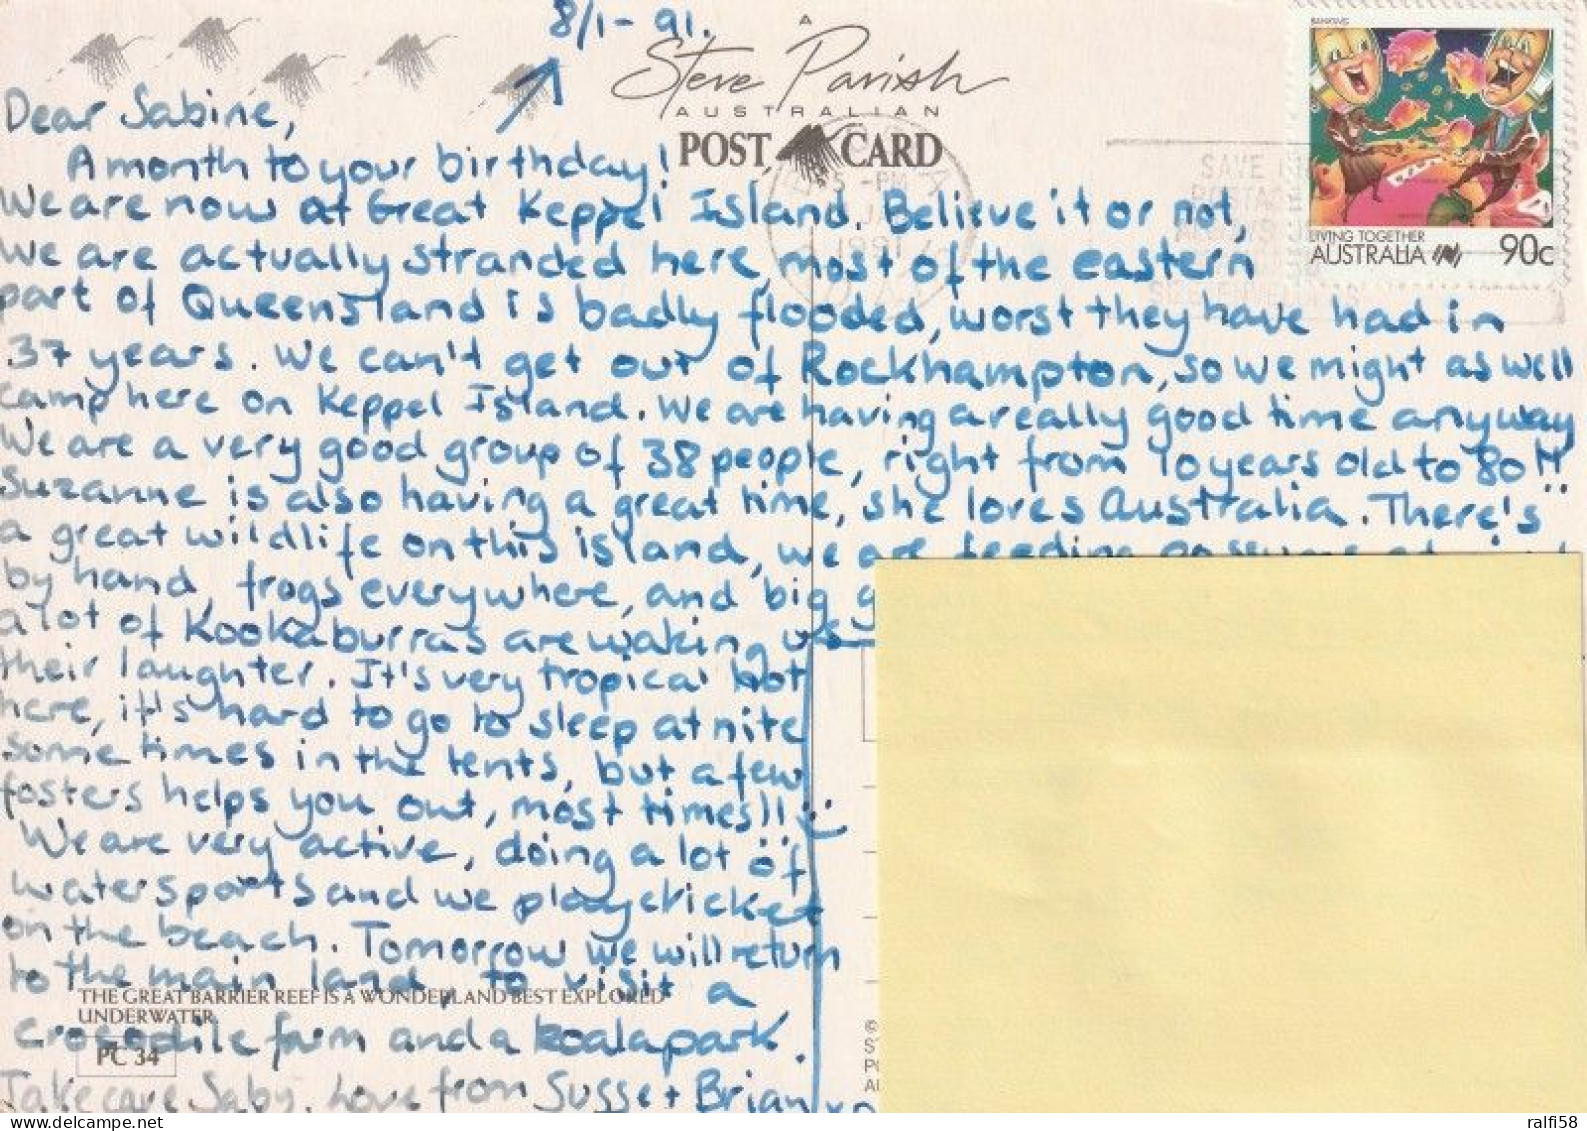 8/1-91.
A
Steve Parish
AUSTRALIAN
POST CARD
BANKING
LIVING TOGETHER
AUSTRALIA 90c
SAVE
1991
Dear Sabine,
A month to your birthday!
We are now at Great Keppel Island. Believe it or not,
we are actually stranded here, most of the eastern
part of Queensland is badly flooded, worst they have had in
37 years. We can't get out of Rockhampton, so we might as well
camp here on Keppel Island. We are having a really good time anyway
We are a very good group of 38 people, right from 10 years old to 80!!
Suzanne is also having a great time, she loves Australia. There's
a great wildlife on this island, we are feeding possums at
by hand, frogs everywhere, and big
a lot of Kookaburras are waking us
their laughter. It's very tropical hot
here, it's hard to go to sleep at nite
some times in the tents, but a few
fosters helps you out, most times!!
We are very active, doing a lot of
watersports and we play cricket
on the beach. Tomorrow we will return
to the main land, to visit a
THE GREAT BARRIER REEF IS A WONDERLAND BEST EXPLORED
UNDERWATER.
crocodile farm and a koala park.
PC 34
Take care Saby. Love from Susse + Brian
delcampe.net
ralfi58